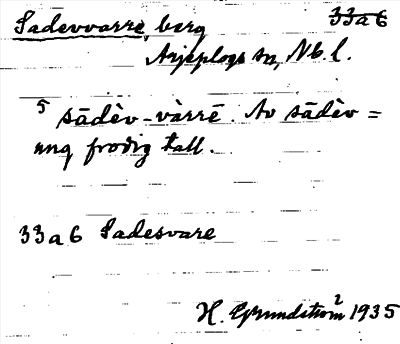 Sadevvarre, berg 33a6
Arjeplogs sn, Nb. l.
5 sādèv-vàrrē. Av sādèv =
ung frodig tall.
33a6 Sadesvare
H. Grundström 2 1935